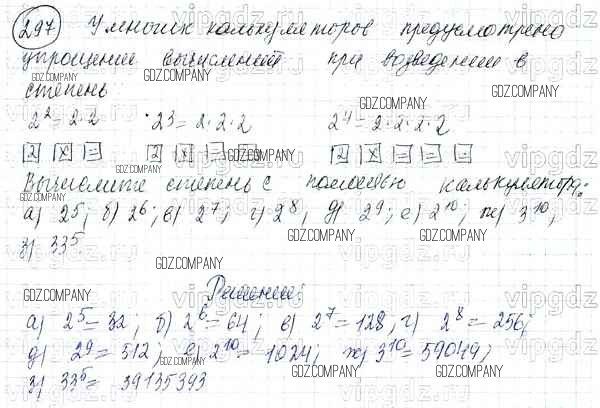 297 У многих калькуляторов предусмотрено
упрощение вычислений при возведении в
степень
2² = 2·2 2³ = 2·2·2 2⁴ = 2·2·2·2
2 × = 2 × = = 2 × = = =
Вычислите степень с помощью калькулятора:
а) 2⁵; б) 2⁶; в) 2⁷; г) 2⁸, д) 2⁹; е) 2¹⁰; ж) 3¹⁰;
з) 33⁵
Решение:
а) 2⁵ = 32; б) 2⁶ = 64; в) 2⁷ = 128; г) 2⁸ = 256;
д) 2⁹ = 512; е) 2¹⁰ = 1024; ж) 3¹⁰ = 59049;
з) 33⁵ = 39135393
GDZ.COMPANY
vipgdz.ru